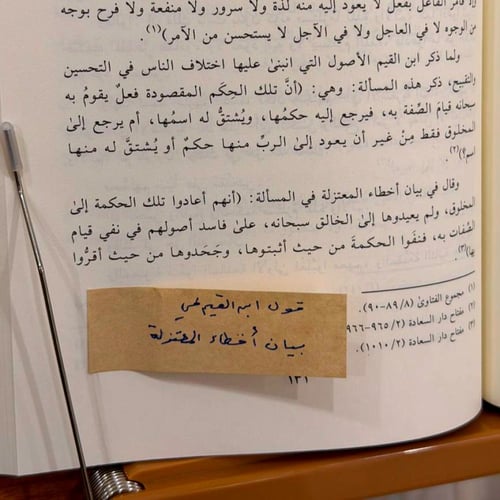 فأمر الفاعل بفعل لا يعود إليه منه لذة ولا سرور ولا منفعة ولا فرح بوجه
من الوجوه لا في العاجل ولا في الآجل لا يستحسن من الآمر)(١)
ولما ذكر ابن القيم الأصول التي انبنىٰ عليها اختلاف الناس في التحسين
والتقبيح، ذكر هذه المسألة: وهي: (أنَّ تلك الحِكَم المقصودة فعلٌ يقومُ به
سبحانه قيامَ الصِّفة به، فيرجع إليه حكمُها، ويُشتقُّ له اسمُها، أم يرجع إلىٰ
المخلوق فقط مِنْ غير أن يعود إلىٰ الربِّ منها حكمٌ أو يُشتقَّ له منها
اسم؟)(٢).
وقال في بيان أخطاء المعتزلة في المسألة: (أنهم أعادوا تلك الحكمة إلىٰ
المخلوق، ولم يعيدوها إلىٰ الخالق سبحانه، علىٰ فاسد أصولهم في نفي قيام
الصِّفات به، فنفَوا الحكمةَ من حيث أثبتوها، وجَحَدوها من حيث أقرُّوا
بها)(٣).
(١) مجموع الفتاوىٰ (٨/ ٨٩-٩٠).
(٢) مفتاح دار السعادة (٢/ ٩٦٥-٩٦٦
(٣) مفتاح دار السعادة (٢/ ١٠١٠).
قول ابن القيم في
بيان أخطاء المعتزلة
١٣١